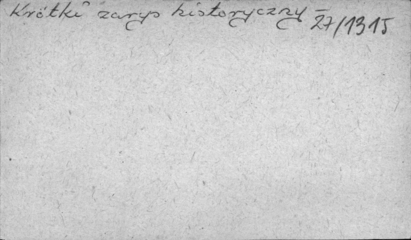 Krótki zarys historyczny – 27/1315